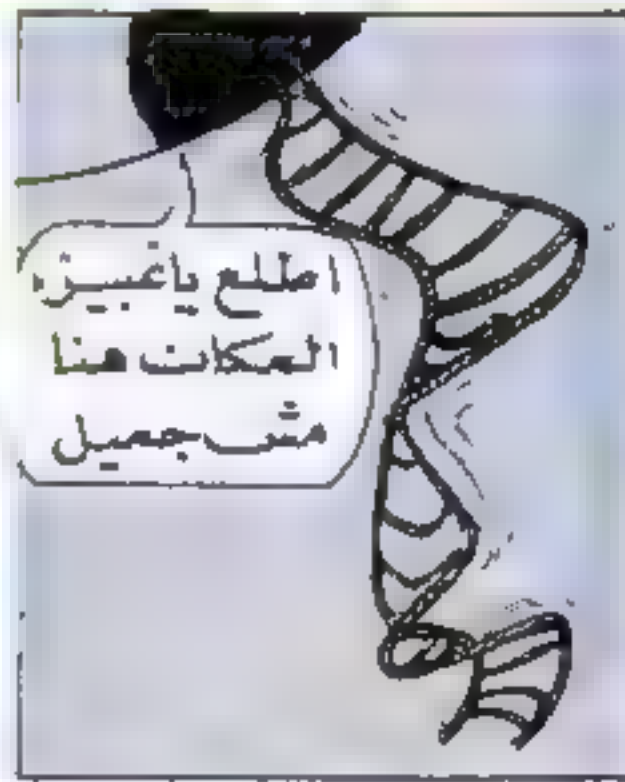 اطلع يا عميزه
المكان هنا
مش جميل